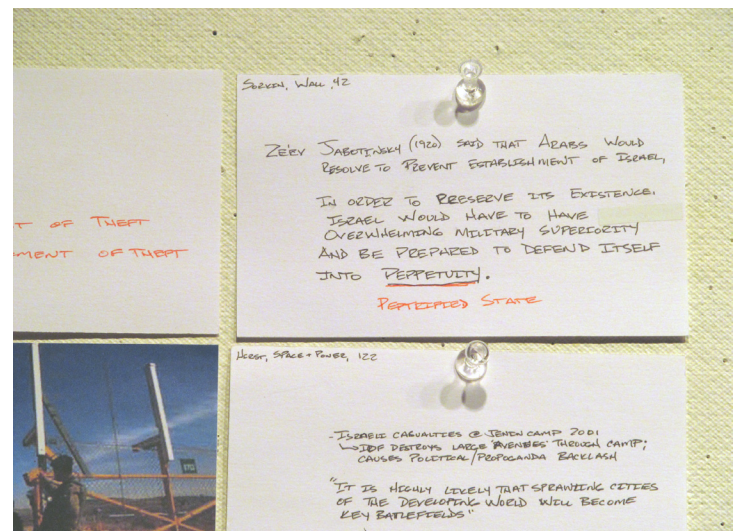 T OF THEFT
MENT OF THEFT
SORKIN, WALL, 42
ZE'EV JABOTINSKY (1920) SAID THAT ARABS WOULD
RESOLVE TO PREVENT ESTABLISHMENT OF ISRAEL,
IN ORDER TO PRESERVE ITS EXISTENCE.
ISRAEL WOULD HAVE TO HAVE
OVERWHELMING MILITARY SUPERIORITY
AND BE PREPARED TO DEFEND ITSELF
INTO PERPETUITY.
PETRIFIED STATE
SPACE + POWER, 122
- ISRAELI CASUALTIES @ JENIN CAMP 2001
↳ IDF DESTROYS LARGE "AVENUES" THROUGH CAMP;
CAUSES POLITICAL/PROPOGANDA BACKLASH
"IT IS HIGHLY LIKELY THAT SPRAWLING CITIES
OF THE DEVELOPING WORLD WILL BECOME
KEY BATTLEFIELDS"